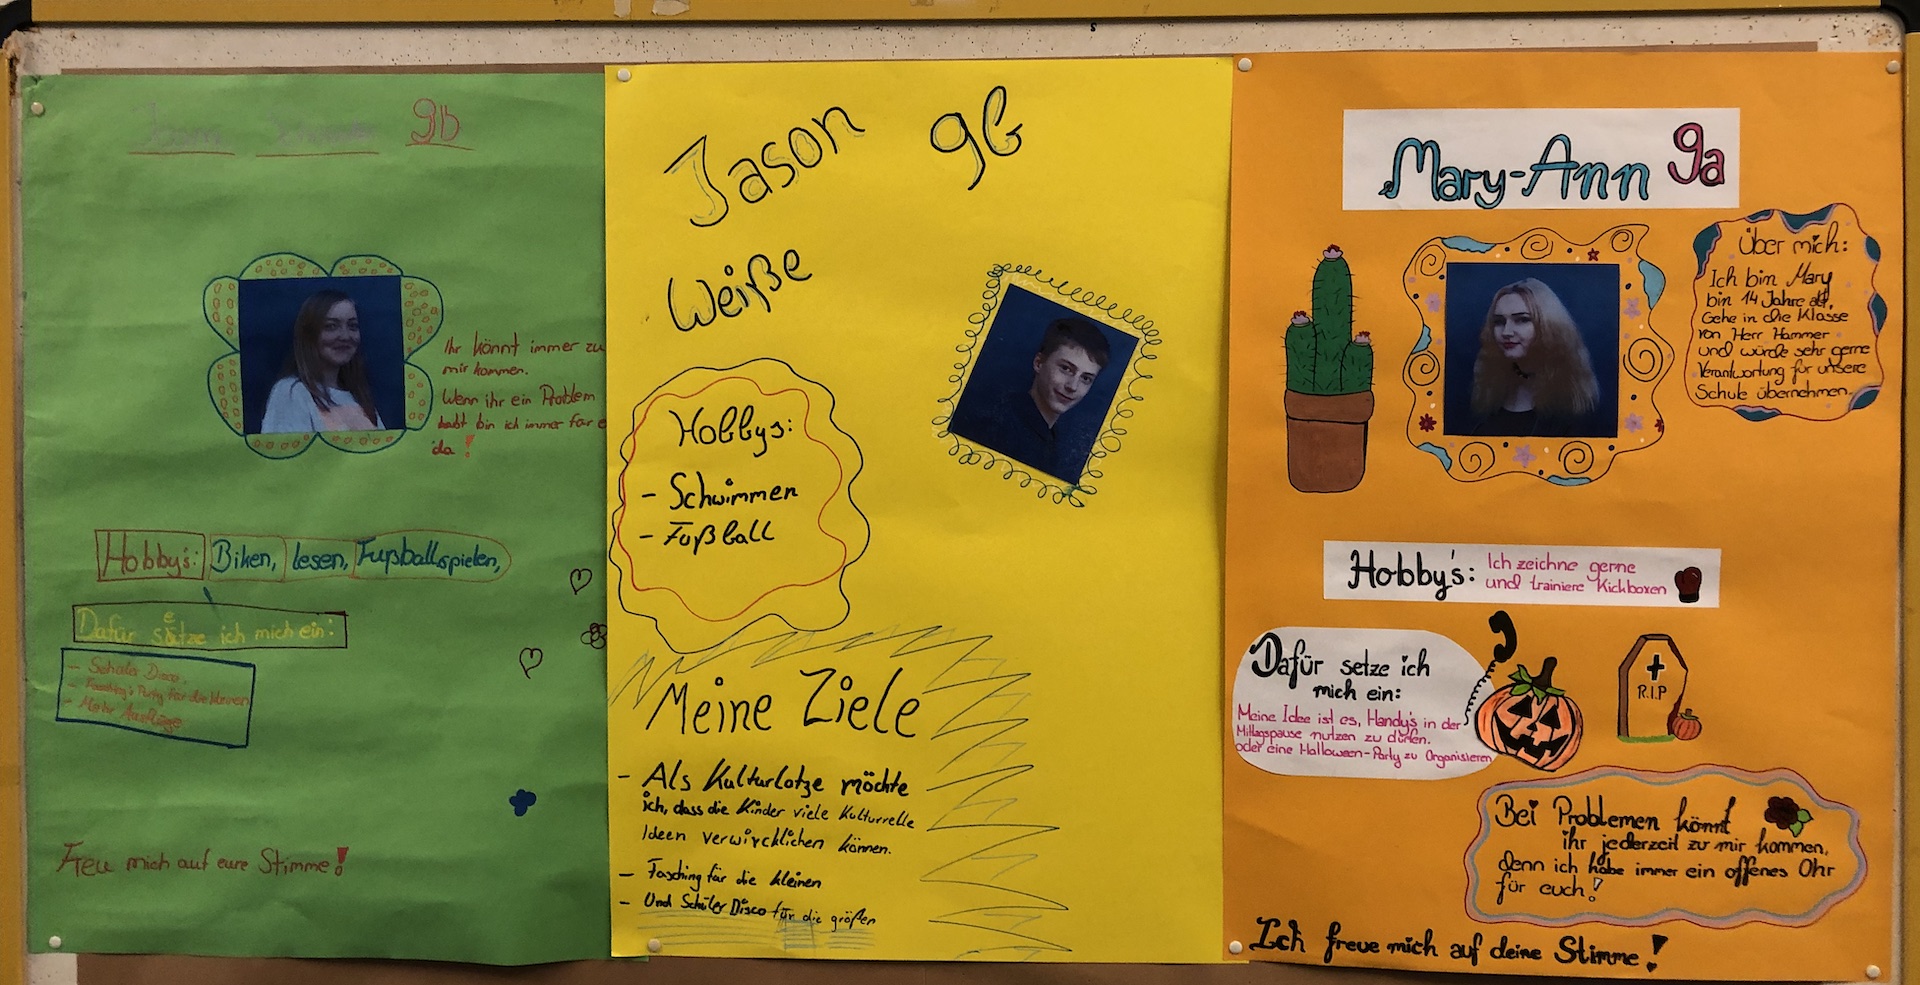 9b
Ihr könnt immer zu
mir kommen.
Wenn ihr ein Problem
habt bin ich immer für e
da!
Hobby's: Biken, lesen, Fußballspielen,
Dafür setze ich mich ein:
- Schuler Disco,
- Fasching's Party für die kleinen
- Mehr Ausflüge
Freu mich auf eure Stimme!
Jason 9b
Weiße
Hobbys:
- Schwimmen
- Fußball
Meine Ziele
- Als Kulturlotze möchte
ich, dass die Kinder viele Kulturrelle
Ideen verwircklichen können.
- Fasching für die kleinen
- Und Schüler Disco für die größen
Mary-Ann 9a
Über mich:
Ich bin Mary
bin 14 Jahre alt,
Gehe in die Klasse
von Herr Hammer
und würde sehr gerne
Verantwortung für unsere
Schule übernehmen.
Hobby's: Ich zeichne gerne
und trainiere Kickboxen
Dafür setze ich
mich ein:
Meine Idee ist es, Handy's in der
Mittagspause nutzen zu dürfen.
oder eine Halloween-Party zu Organisieren
R.I.P
Bei Problemen könnt
ihr jederzeit zu mir kommen,
denn ich habe immer ein offenes Ohr
für euch!
Ich freue mich auf deine Stimme!